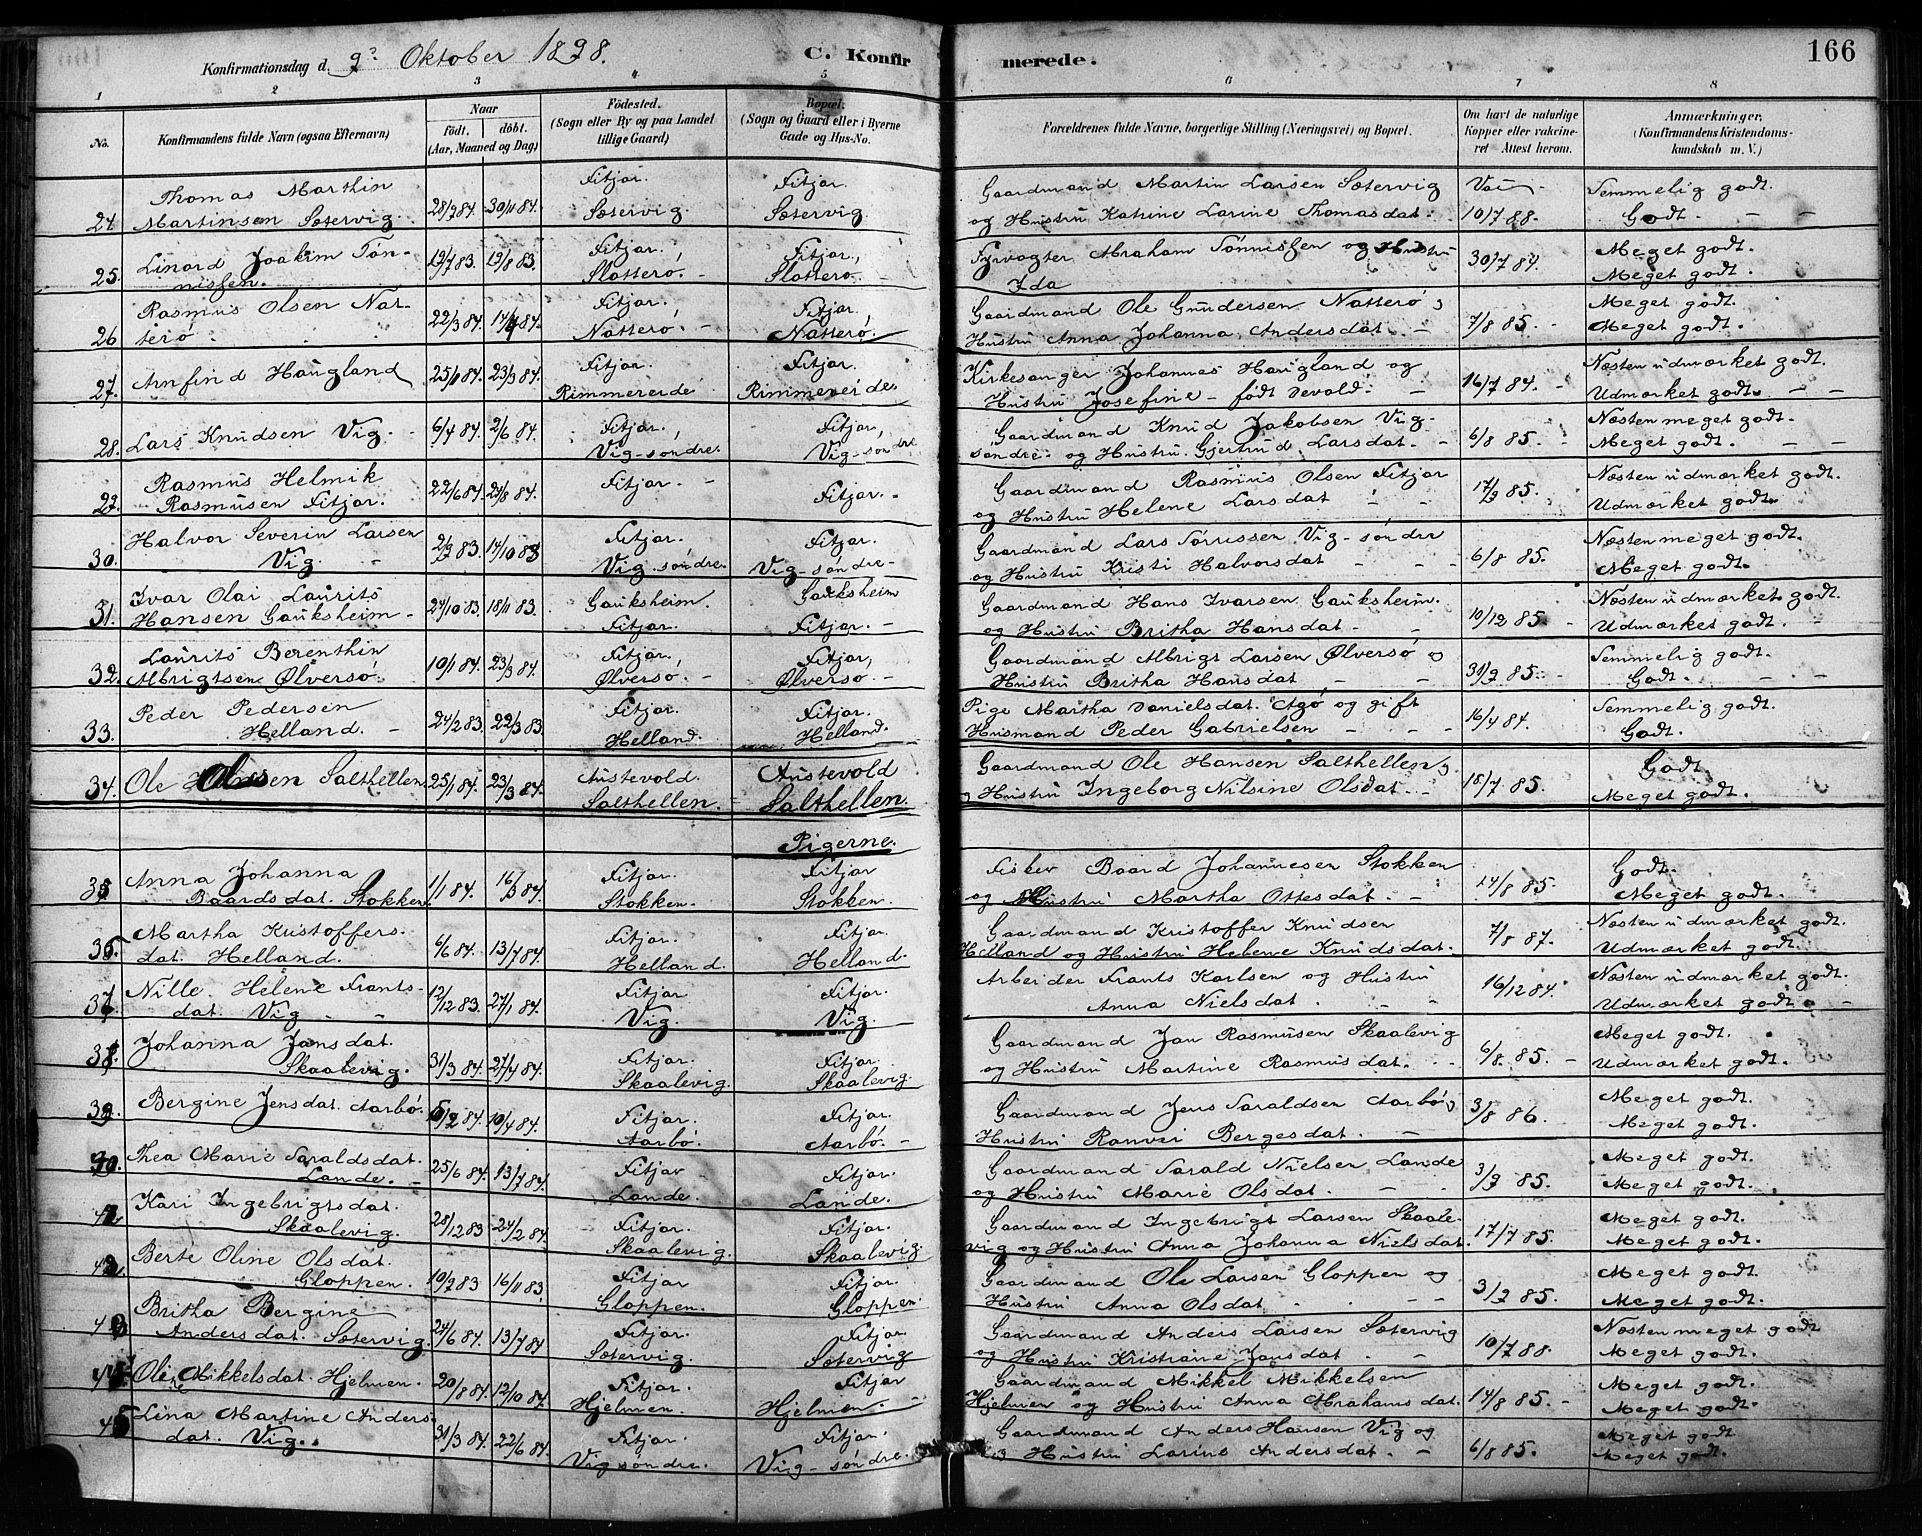 166
Konfirmationsdag d. 9de Oktober 1898.
C. Konfirmerede.
1 2 3 4 5 6 7 8
No.
Konfirmandens fulde Navn (ogsaa Efternavn)
Naar
födt. döbt.
(Aar, Maaned og Dag)
Födested.
(Sogn eller By og paa Landet
tillige Gaard)
Bopæl.
(Sogn og Gaard eller i Byerne
Gade og Hus-No.
Forældrenes fulde Navne, borgerlige Stilling (Næringsvei) og Bopæl.
Om havt de naturlige
Kopper eller vakcine-
ret Attest herom.
Anmærkninger,
(Konfirmandens Kristendoms-
kundskab m. V.)
Thomas Marthin Fitjar. Fitjar. Gaardmand Martin Larsen Sætervig Temmelig godt.
24. Martinsen Sætervig. 30/11 84. Sætervig. Sætervig. og Hustru Katrine Larine Thomasdat. 10/7 88. Godt.
Linard Joakim Tön- Fitjar. Fitjar, Fyrvogter Abraham Tönnissen og Hustru Meget godt.
25. nissen. 19/7 83. 19/8 83. Slatterö. Slatterö. Ida 30/7 84. Meget godt.
Rasmus Olsen Nat- Fitjar. Fitjar. Gaardmand Ole Gundersen Natterö og Meget godt.
26 terö. 22/3 84. Natterö. Natterö. Hustru Anna Johanna Andersdat. 7/8 85. Meget godt.
Fitjar. Fitjar. Kirkesanger Johannes Haugland og Næsten udmærket godt.
27. Arnfind Haugland 25/1 84. 23/3 84. Rimmereide Rimmereide Hustru Josefine - født Devold. 16/7 84. Udmærket godt.
Fitjar. Fitjar, Gaardmand Knud Jakobsen Vig Næsten meget godt.
28. Lars Knudsen Vig. 6/4 84. 2/6 84. Vig-söndre. Vig-söndre söndre og Hustru Gjertrud Larsdat. 6/8 85. Meget godt.
Rasmus Helmik Fitjar. Fitjar. Gaardmand Rasmus Olsen Fitjar Næsten udmærket godt.
29. Rasmusen Fitjar. 22/6 84. 24/8 84. og Hustru Helene Larsdat Udmærket godt.
Halvor Severin Larsen Fitjar. Fitjar. Gaardmand Lars Tørrissen Vig-söndre Næsten meget godt.
30. Vig. 14/10 83 Vig. söndre. Vig-söndre og Hustru Kristi Halvorsdat 6/8 85. Meget godt.
Ivar Olai Laurits Gauksheim. Gauksheim Gaardmand Hans Ivarsen Gauksheim. Næsten udmærket godt.
31. Hansen Gauksheim 24/10 83 18/11 83. Fitjar. Fitjar. og Hustru Britha Hansdat 10/12 85. Udmærket godt.
Laurits Berenthin Fitjar. Fitjar, Gaardmand Albrigt Larsen Ølversö og Temmelig godt.
32. Albrigtsen Ølversö. 19/1 84. 23/3 84. Ølversö. Ølversö. Hustru Britha Hansdat Godt.
Peder Pedersen Fitjar. Fitjar. Pige Martha Danielsdat. og gift Temmelig godt.
33. Helland. 24/2 83. 22/3 83. Helland. Helland. Husmand Peder Gabrielsen 16/4 84. Godt.
Austevold. Austevold Gaardmand Ole Hansen Salthellen og Godt
34. Ole Olsen Salthellen 25/1 84. 23/3 84. Salthellen. Salthellen. Hustru Ingeborg Nilsine Olsdat. 18/7 85. Meget godt.
Pigerne.
Anna Johanna Fitjar. Fitjar Fisker Baard Johannesen Stokken Godt.
35. Baardsdat. Stokken. 1/1 84. 16/3 84. Stokken. Stokken. og Hustru Martha Ottesdat. 14/8 85. Meget godt.
Martha Kristoffers- Fitjar. Fitjar. Gaardmand Kristoffer Knudsen Næsten udmærket godt.
36. dat. Helland. 6/6 84. 13/7 84. Helland. Helland. Helland og Hustru Helene Knudsdat. 7/8 87. Udmærket godt.
Nille Helene Frants- Fitjar Fitjar. Arbeider Frants Karlsen og Hustru Næsten udmærket godt.
37. dat. Vig 12/12 83. 27/1 84. Vig. Vig. Anna Nielsdat. 16/12 84. Udmærket godt.
Johanna Jansdat. Fitjar. Fitjar. Gaardmand Jan Rasmusen Skaalevig Meget godt.
38. Skaalevig. 31/3 84. 27/4 84. Skaalevig. Skaalevig. og Hustru Martine Rasmusdat. 6/8 85. Udmærket godt.
Bergine Jensdat. Aarbö. Fitjar. Fitjar. Gaardmand Jens Taraldsen Aarbö og Meget godt.
39. 19/4 84. Aarbö. Aarbö. Hustru Ranvei Bergesdat. 3/8 86. Meget godt.
Thea Marie Taraldsdat. Fitjar Fitjar. Gaardmand Tarald Nielsen Lande Meget godt.
40. Lande. 25/6 84. 13/7 84. Lande. Lande. og Hustru Marie Olsdat. Meget godt.
Kari Ingebrigtsdat. Fitjar. Fitjar. Gaardmand Ingebrigt Larsen Skaale- Meget godt.
41. Skaalevig. 28/12 83 24/2 84. Skaalevig. Skaalevig. vig og Hustru Anna Johanna Nielsdat. 17/7 85. Meget godt.
Berte Oline Olsdat. Fitjar Fitjar. Gaardmand Ole Larsen Gloppen og Meget godt.
42. Gloppen. 16/11 83. Gloppen. Gloppen. Hustru Anna Olsdat Meget godt.
Britha Bergine Fitjar. Fitjar Gaardmand Anders Larsen Sætervig Næsten meget godt
43 Andersdat. Sætervig. 24/6 84. 13/7 84. Sætervig. Sætervig og Hustru Kristiane Jansdat. 10/7 88. Meget godt.
Fitjar. Fitjar Gaardmand Mikkel Mikkelsen Meget godt.
44. Oline Mikkelsdat. Hjelmen. 20/8 84. 12/10 84. Hjelmen. Hjelmen. Hjelmen og Hustru Anna Abrahamsdat. 14/8 85. Meget godt.
Lina Martine Anders- Fitjar. Fitjar. Gaardmand Anders Hansen Vig og Meget godt
45 dat. Vig. 31/3 84. 22/6 84. Vig söndre. Vig-söndre. Hustru Larine Andersdat. 6/8 85. Meget godt.